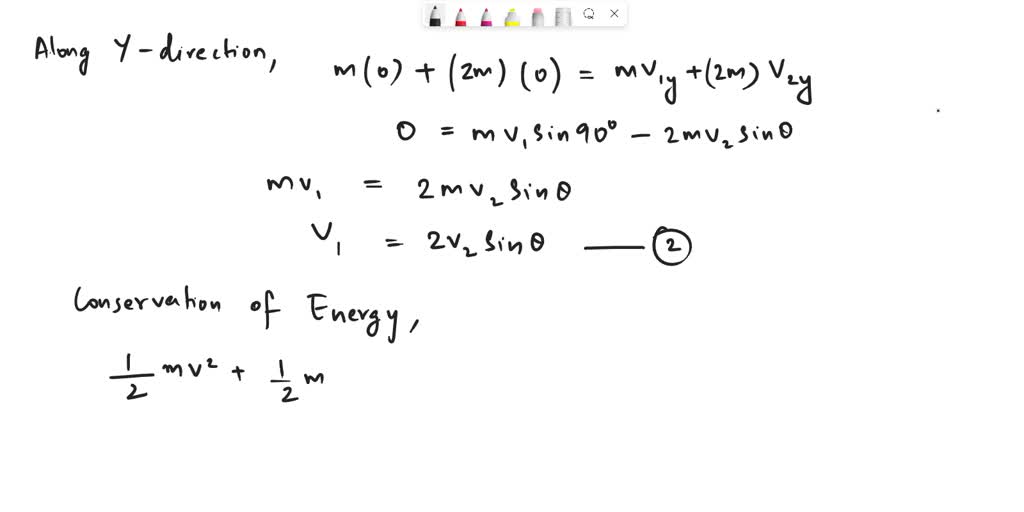 Along Y-direction,
m(0) + (2m)(0) = mV₁y + (2m) V₂y
0 = mv₁ sin90° - 2mv₂ sinθ
mv₁ = 2mv₂ sinθ
V₁ = 2v₂ sinθ —— ②
Conservation of Energy,
1/2 mv² + 1/2 m